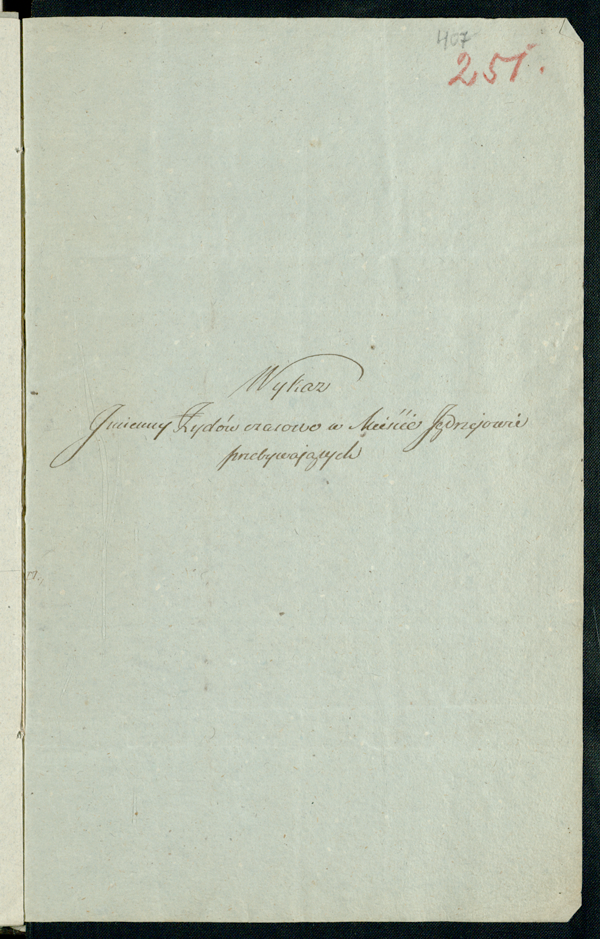 407
251.
Wykaz
Jmienny Żydów czasowo w Mieście Jędrzejowie
przebywających